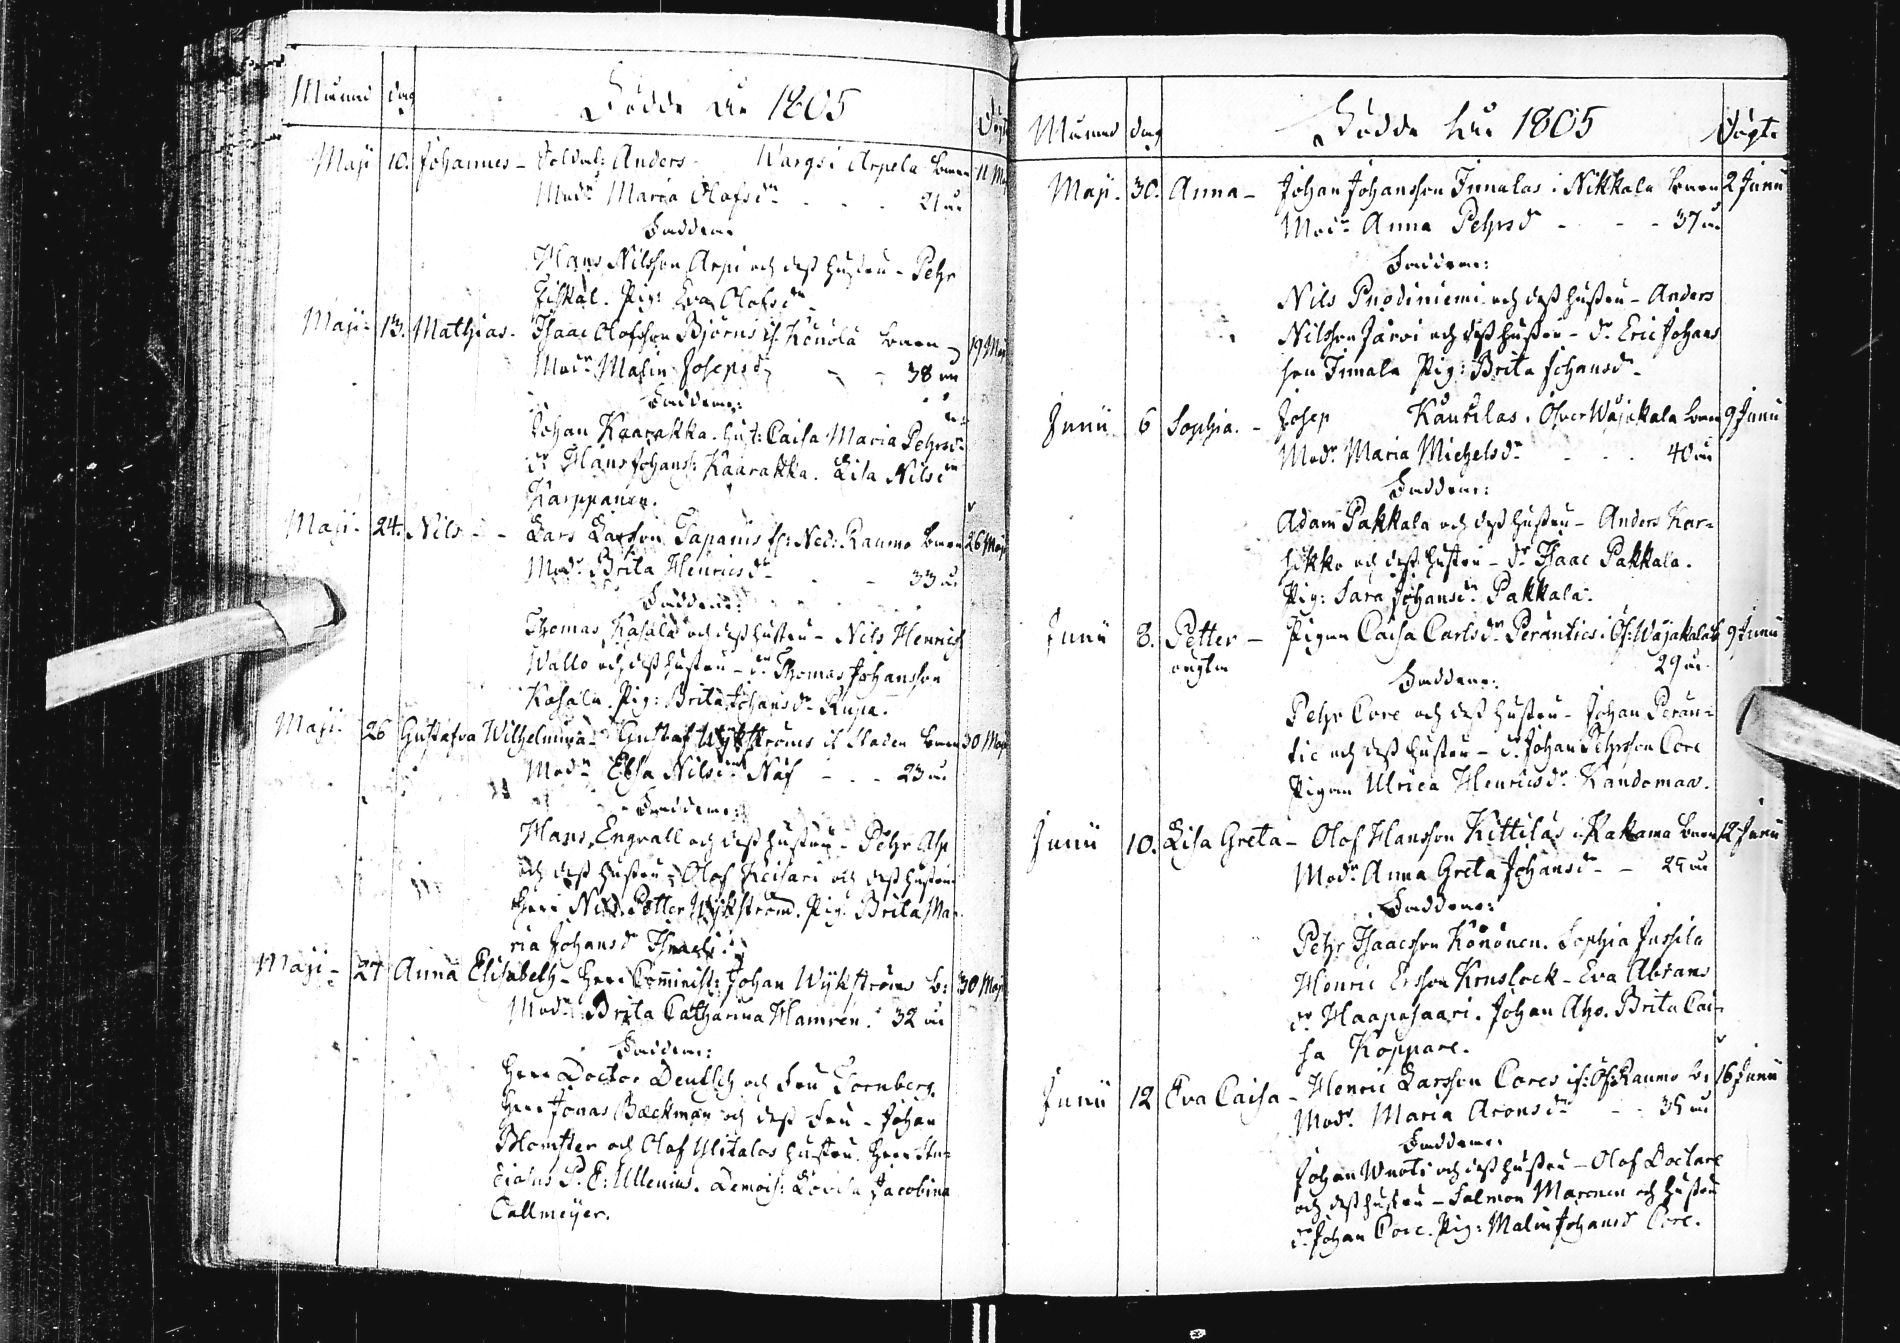 Månad dag Födde År 1805 Döpte
Maji 10. Johannes - Soldat: Anders Wargs i Arpela barn 11 Maj
Modr Maria Olofsdr - - - 21 år
Faddrar
Hans Nilsson Arpi och dess hustru - Pehr
Fiskal. Pig: Eva Olofsdr
Maji - 13. Mathias - Isaac Olofsson Björns if. Könölä barn - 19 Maj
Modr Malin Josepsdr - - 38 år
Faddrar:
Johan Kaarakka. hust: Caisa Maria Pehrsdr
dr Hans Johanss: Kaarakka. Lisa Nilsdr
Karppanen.
Maji - 24. Nils - - Lars Larsson Tapanis if: Ned: Raumo barn 26 Maji
Modr Brita Henricsdr - - 33 år
Faddrar:
Thomas Kasala och dess hustru - Nils Henrics
Wallo och dess hustru - dr Thomas Johansson
Kasala. Pig: Brita Johansdr Rupa.
Maji - 26 Gustafva Wilhelmina - Gustaf Wykströms if Staden barn 30 Maji
Modr Elsa Nilsdr Näf - - - 23 år
Faddrar:
Hans Engvall och dess hustru - Pehr Ahp
och dess hustru - Olof Keisari och dess hustru
Herr Nils Petter Wykström. Pig: Brita Ma-
ria Johansdr
Maji - 27 Anna Elisabeth - Herr Cominist: Johan Wykströms b: 30 Maji
Modr Brita Catharina Hamren. 32 år
Faddrar:
Herr Doctor Deutsch och Fru Tornberg.
Herr Jonas Bæckman och dess Fru - Johan
Blomster och Olof Ylitalos hustru. Herr Stu-
diosus P. E: Ullenius. Demois: Lovisa Jacobina
Callmeyer.
Månad dag Födde År 1805 Döpte
Maji - 30. Anna - Johan Johansson Immalas i Nikkala barn 2 Junii
Modr Anna Pehrsdr - - - 37 år
Faddrar:
Nils Puodiniemi och dess hustru - Anders
Nilsson Järvi och dess hustru - dr Eric Johans
son Immala Pig: Brita Johansdr -
Junii 6 Sophia. - Josep Kautilas. Öfver Wojakala barn 9 Junii
Modr Maria Michelsdr - - - 40 år
Faddrar:
Adam Pakkala och dess hustru - Anders Kar-
hikko och dess hustru - dr Isaac Pakkala.
Pig: Sara Johansdr Pakkala.
Junii 8. Petter - Pigan Caisa Carlsdr Peranties i Öf: Wojakala b 9 Junii
oägta 29 år
Faddrar:
Pehr Core och dess hustru - Johan Peran-
tie och dess hustru - dr Johan Pehrsson Core
Pigan Ulrica Henricsdr Kandomaa.
Junii 10. Lisa Greta - Olof Hansson Kittiläs i Kakama barn 12 Junii
Modr Anna Greta Johansdr - - 29 år
Faddrar:
Pehr Isaacsson Könönen. Sophia Jussila
Henric Ersson Kruslock - Eva Abrams
dr Haapasaari. Johan Aho. Brita Cai-
sa Koppare.
Junii 12 Eva Caisa - Henric Larsson Cores if: Öf: Raumo b: 16 Junii
Modr Maria Aronsdr - - 35 år
Faddrar:
Johan Wuoti och dess hustru - Olof Doctare
och dess hustru - Salmon Maronen och hustru
dr Johan Core. Pig: Malin Johansdr Core.